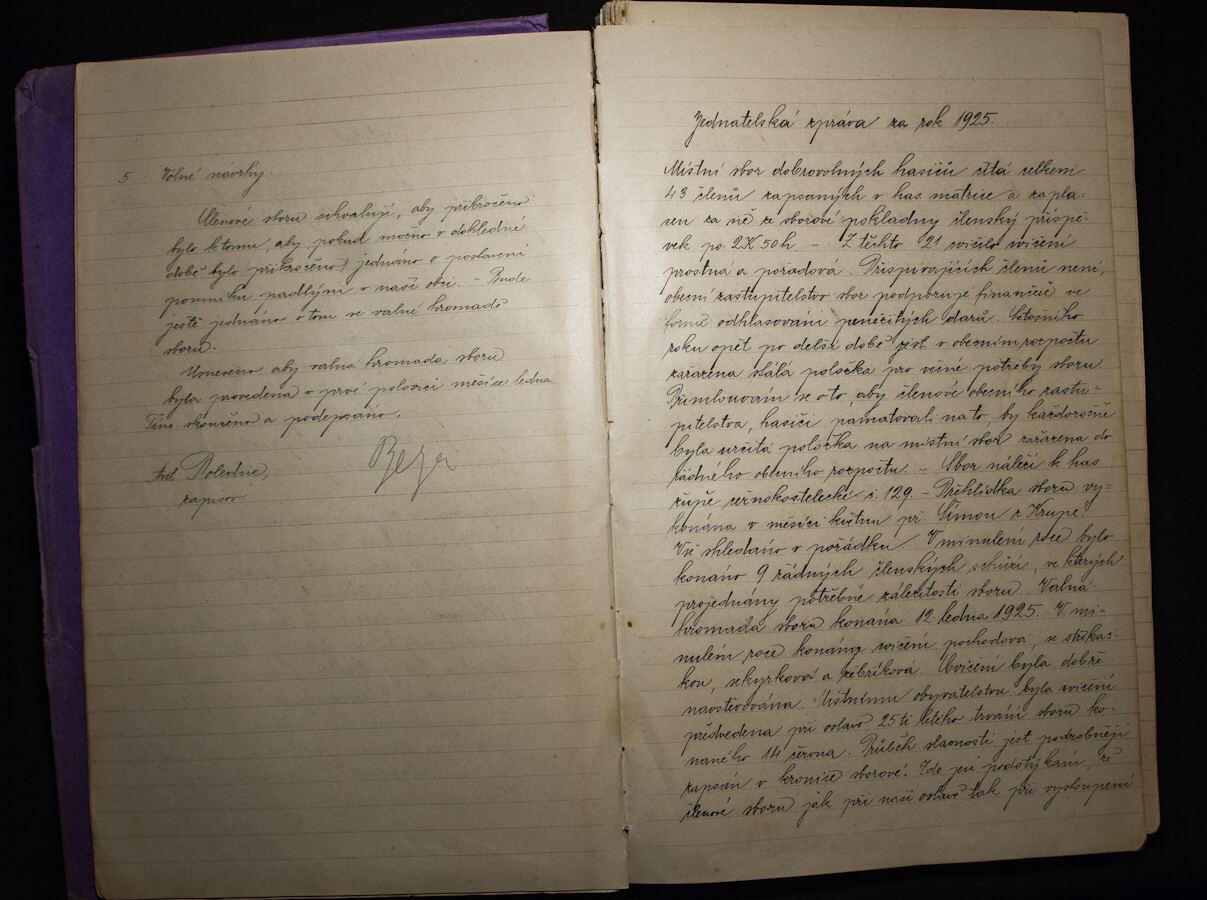 5 Volné návrhy.
Členové sboru schvalují, aby přikročeno
bylo k tomu aby, pokud možno v dohledné
době bylo (přikročeno) jednáno o postavení
pomníku padlým v naší obci. – Bude
ještě jednáno o tom ve valné hromadě
sboru.
Usneseno aby valná hromada sboru
byla provedena v prvé polovici měsíce ledna.
Tím skončeno a podepsáno.
Ant Poledne,
zapisov
Jednatelská zpráva za rok 1925.
Místní sbor dobrovolných hasičů čítá celkem
43 členů zapsaných v has. matrice a zapla-
cen za ně ze sborové pokladny členský příspě-
vek po 2K 50h. – Z těchto 21 cvičilo cvičení
prostná a pořadová. Přispívajících členů není,
obecní zastupitelstvo sbor podporuje finančně ve
formě odhlasování peněžitých darů. Letošního
roku opět po delší době jest v obecním rozpočtu
zařazena stálá položka pro věcné potřeby sboru.
Přimlouvám se o to, aby členové obecního zastu-
pitelstva, hasiči pamatovali na to, by každoročně
byla určitá položka na místní sbor zařazena do
řádného obecního rozpočtu. – Sbor náleží k has.
župě černokostelecké č. 129. – Přehlídka sboru vy-
konána v měsíci květnu př. Šímou z Krupé.
Vše shledáno v pořádku. V minulém roce bylo
konáno 9 řádných členských schůzí, ve kterých
projednány potřebné záležitosti sboru. Valná
hromada sboru konána 12 ledna 1925. V mi-
nulém roce konány cvičení pochodová, se stříkač-
kou, sekyrková a žebříková. Cvičení byla dobře
navštěvována. Místnímu obyvatelstvu byla cvičení
předvedena při oslavě 25ti letého trvání sboru ko-
naného 14 června. Průběh slavnosti jest podrobněji
zapsán v kronice sborové. Zde jen podotýkám, že
členové sboru jak při naší oslavě tak při vystoupení